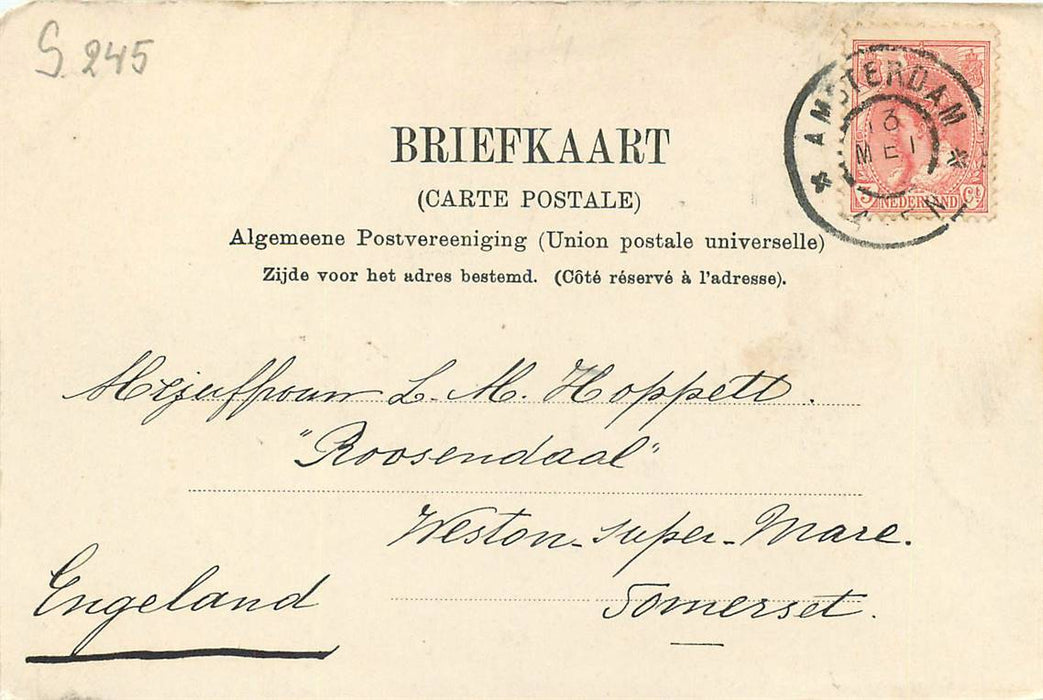 S. 245
AMSTERDAM
13
MEI
5 Ct
NEDERLAND
BRIEFKAART
(CARTE POSTALE)
Algemeene Postvereeniging (Union postale universelle)
Zijde voor het adres bestemd. (Côté réservé à l'adresse).
Mejuffrouw L. M. Hoppett.
"Roosendaal"
Weston-super-Mare.
Somerset.
Engeland